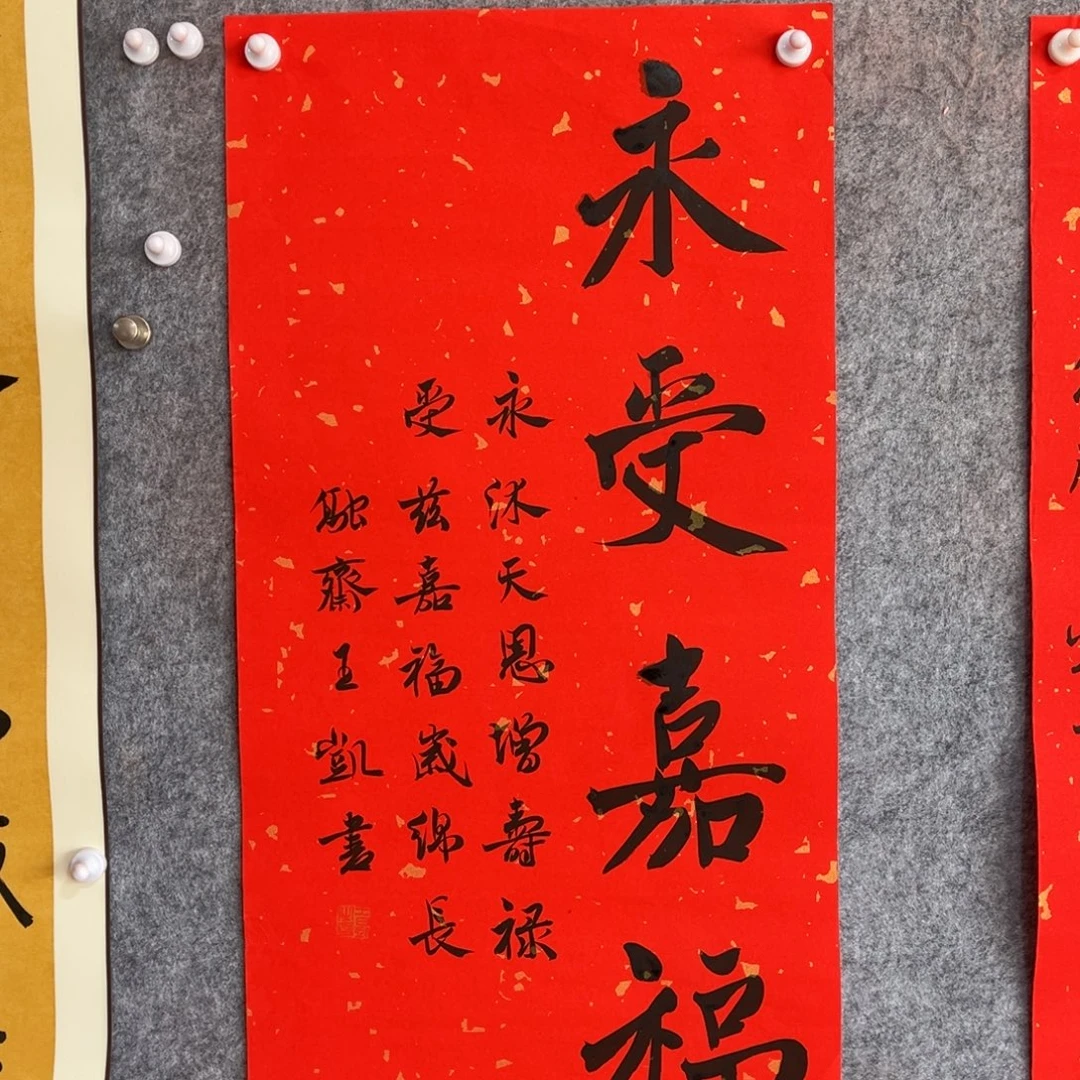 永受嘉福
永沐天恩增壽禄
受兹嘉福歲綿長
融齋王凱書